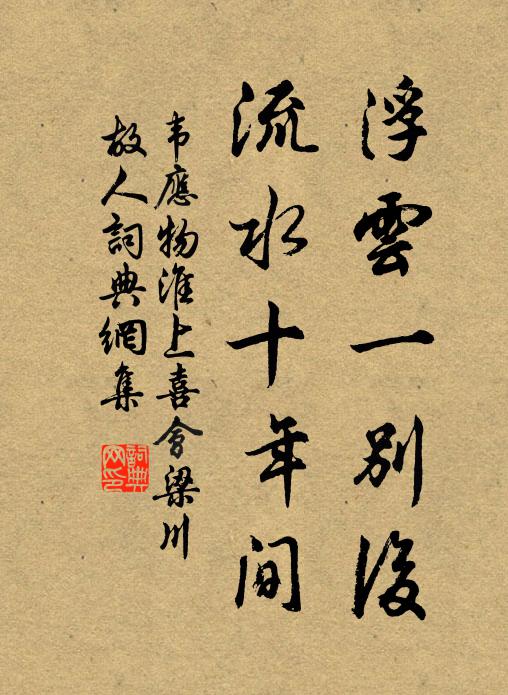 浮雲一別後
流水十年间
韦應物淮上喜會梁川
故人詞典網集
詞典
网印